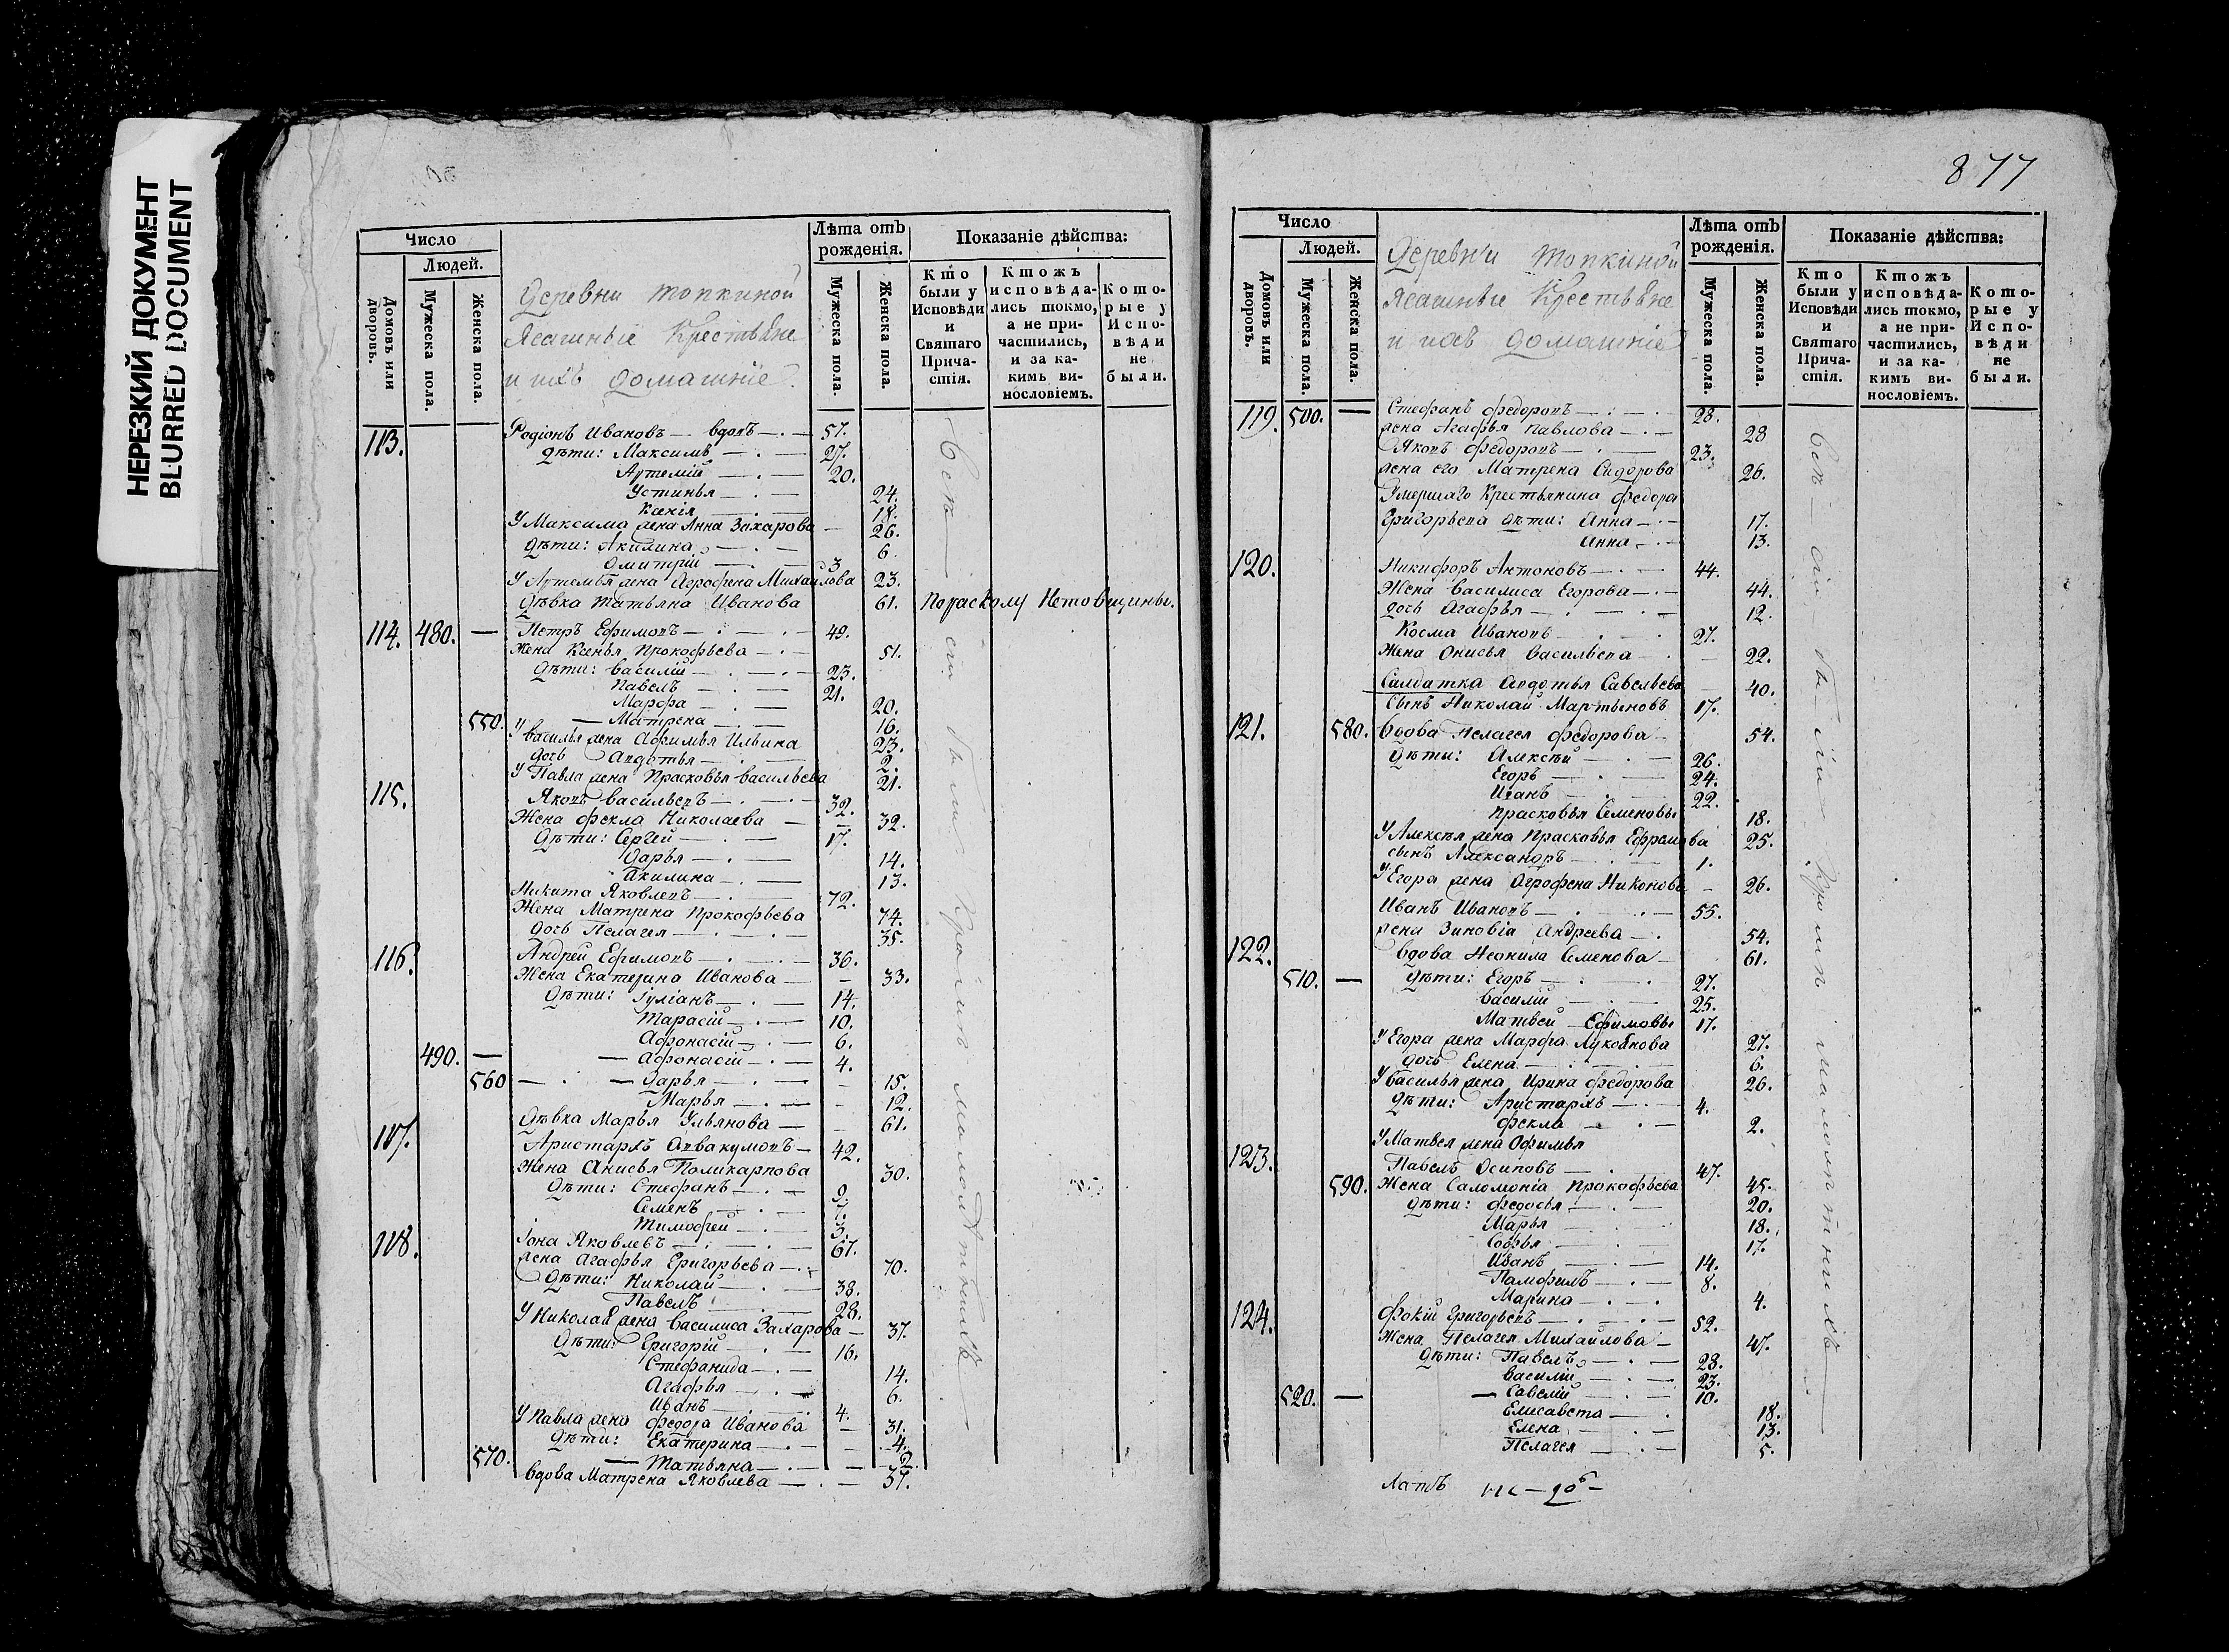 НЕРЕЗКИЙ ДОКУМЕНТ
BLURRED DOCUMENT
Число
Людей.
Домовъ или дворовъ.
Мужеска пола.
Женска пола.
Деревни Топкиной
Ясашные Крестьяне
и ихъ домашніе.
Лѣта отъ рожденія.
Мужеска пола.
Женска пола.
Показаніе дѣйства:
Кто были у Исповѣди и Святаго Причастія.
Ктожъ исповѣдались токмо, а не причастились, и за какимъ винословіемъ.
Которые у Исповѣди не были.
113. Родіонъ Ивановъ — вдовъ — 57.
Дѣти: Максимъ — 27.
Артемій — 20.
Устинья — 24.
Ксенія — 18.
У Максима жена Анна Захарова — 26.
Дѣти: Акилина — 6.
Дмитрій — 3
У Артемья жена Агрофена Михайлова 23.
Дѣвка Татьяна Иванова 61. По расколу Нетовщины.
114. 480. — Петръ Ефимовъ — 49.
Жена Ксенья Прокофьева — 51.
Дѣти: Василій — 23.
Павелъ — 21.
Марфа — 20.
550. — Матрена — 16.
У Василья жена Афимья Ильина 23.
Дочь Авдотья — 2.
У Павла жена Прасковья Васильева 21.
115. Яковъ Васильевъ — 32.
Жена Фекла Николаева — 32.
Дѣти: Сергей — 17.
Дарья — 14.
Акилина — 13.
Никита Яковлевъ — 72.
Жена Матрена Прокофьева 74.
Дочь Пелагея — 35.
116. Андрей Ефимовъ — 36.
Жена Екатерина Иванова — 33.
Дѣти: Іуліанъ — 14.
Тарасій — 10.
Афонасій — 6.
490. — Афонасій — 4.
560 — Дарья — 15.
Марья — 12.
Дѣвка Марья Ульянова — 61.
117. Аристархъ Аввакумовъ — 42.
Жена Анисья Поликарпова 30.
Дѣти: Стефанъ — 9.
Семенъ — 7.
Тимофей — 3.
118. Іона Яковлевъ — 67.
жена Агафья Григорьева — 70.
Дѣти: Николай — 38.
Павелъ — 28.
У Николая жена Василиса Захарова — 37.
Дѣти: Григорій — 16.
Стефанида — 14.
Агафья — 6.
Иванъ — 4.
У Павла жена Федора Иванова — 31.
Дѣти: Екатерина — 4.
570. — Татьяна — 2.
Вдова Матрена Яковлева — 37.
877
Число
Людей.
Домовъ или дворовъ.
Мужеска пола.
Женска пола.
Деревни Топкиной
Ясашные Крестьяне
и ихъ домашніе
Лѣта отъ рожденія.
Мужеска пола.
Женска пола.
Показаніе дѣйства:
Кто были у Исповѣди и Святаго Причастія.
Ктожъ исповѣдались токмо, а не причастились, и за какимъ винословіемъ.
Которые у Исповѣди не были.
119. 500. — Стефанъ Федоровъ — 28.
жена Агафья Павлова — 28
Яковъ Федоровъ — 23.
жена его Матрена Сидорова 26.
Умершаго Крестьянина Федора
Григорьева дѣти: Анна — 17.
Анна — 13.
120. Никифоръ Антоновъ — 44.
Жена Василиса Егорова — 44.
дочь Агафья — 12.
Косма Ивановъ — 27.
Жена Онисья Васильева — 22.
Салдатка Авдотья Савельева 40.
Сынъ Николай Мартыновъ 17.
121. 580. Вдова Пелагея Федорова — 54.
Дѣти: Алексѣй — 26.
Егоръ — 24.
Иванъ — 22.
Прасковья Семеновы 18.
У Алексѣя жена Прасковья Ефремова 25.
сынъ Александръ — 1.
У Егора жена Агрофена Никонова — 26.
Иванъ Ивановъ — 55.
жена Зиновіа Андреева — 54.
122. Вдова Неонила Семенова — 61.
510. — Дѣти: Егоръ — 27.
Василій — 25.
Матвей Ефимовы 17.
У Егора жена Марфа Лукоянова 27.
дочь Елена — 6.
У Василья жена Ирина Федорова 26.
Дѣти: Аристархъ — 4.
Фекла — 2.
У Матвея жена Офимья
123. Павелъ Осиповъ — 47.
590. Жена Саломоніа Прокофьева 45.
Дѣти: Федосья — 20.
Марья — 18.
Софья — 17.
Иванъ — 14.
Памфилъ — 8.
Марина — 4.
124. Фокій Григорьевъ — 52.
Жена Пелагея Михайлова — 47.
Дѣти: Павелъ — 28.
Василій — 23.
520. — Савелій — 10.
Елисавета — 18.
Елена — 13.
Пелагея — 5.